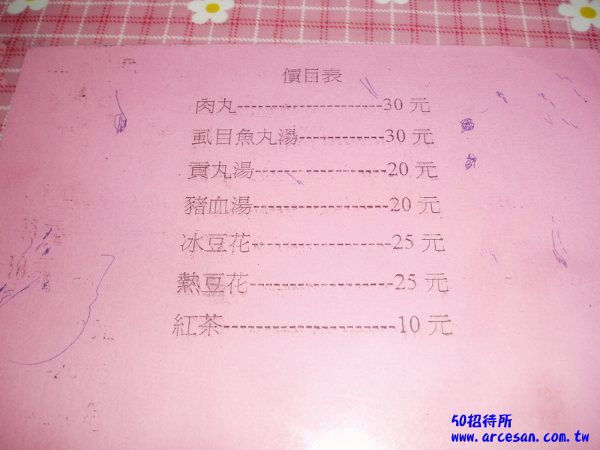 價目表
肉丸--------------------30 元
虱目魚丸湯------------30 元
貢丸湯------------------20 元
豬血湯------------------20 元
冰豆花------------------25 元
熱豆花------------------25 元
紅茶----------------------10 元
50招待所
www.arcesan.com.tw